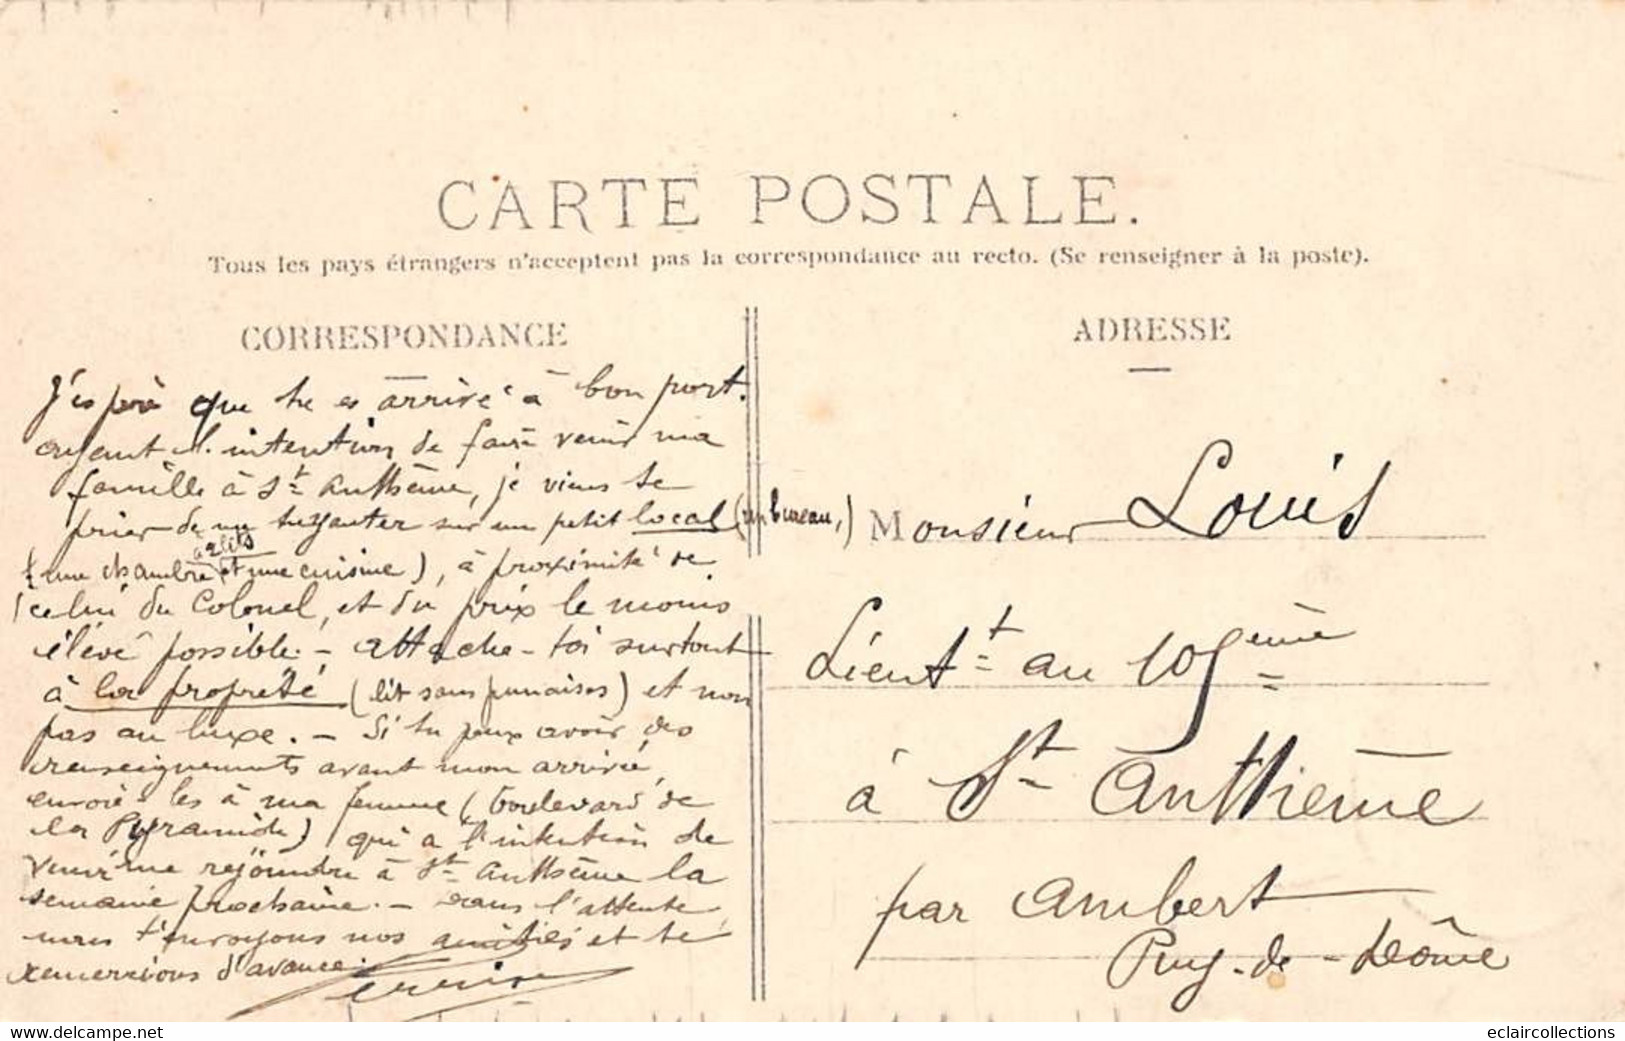 CARTE POSTALE.
Tous les pays étrangers n'acceptent pas la correspondance au recto. (Se renseigner à la poste).
CORRESPONDANCE
J'espère que tu es arrivé à bon port.
ayant l'intention de faire venir ma
famille à St Anthème, je viens te
prier de me sur un petit local (un bureau,)
à 2 lits
(une chambre et une cuisine), à proximité de
celui du Colonel, et du prix le moins
élevé possible. - attache-toi surtout
à la propreté (lit sans punaises) et non
pas au luxe. - Si tu peux avoir des
renseignements avant mon arrivée,
envoie-les à ma femme (boulevard de
la Pyramide) qui a l'intention de
venir me rejoindre à St Anthème la
semaine prochaine. - Dans l'attente,
nous t'envoyons nos amitiés et te
remercions d'avance.
ADRESSE
Monsieur Louis
Lieut-t au 105ème
à St Anthème
par Ambert
Puy-de-Dôme
www.delcampe.net
eclaircollections